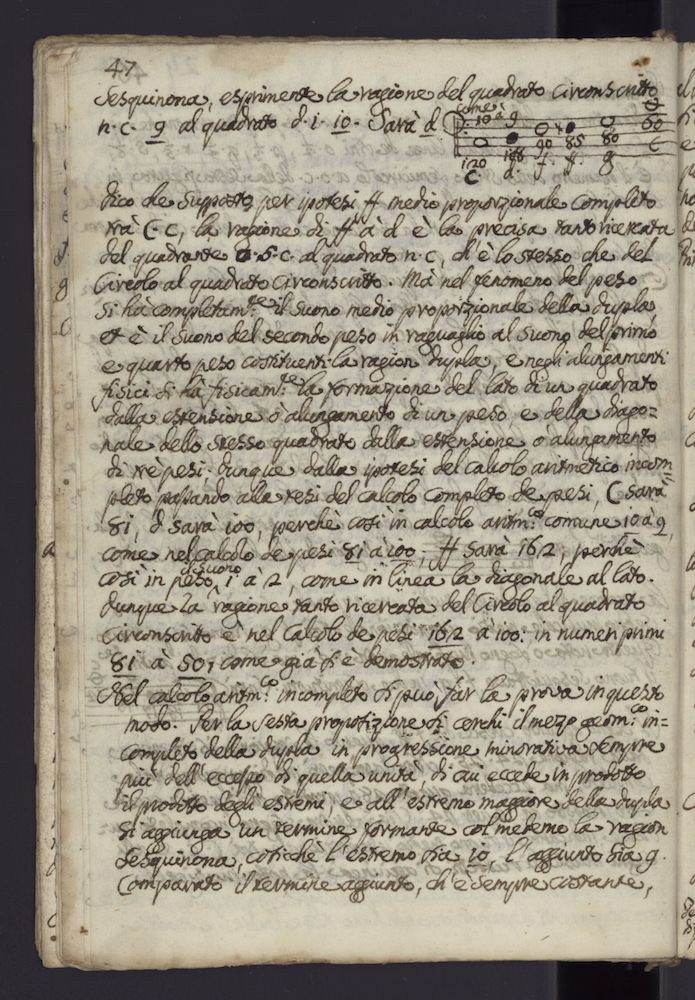 47
Sesquinona, esprimente la ragione del quadrato Circonscritto
n. c. 9 al quadrato d. i. 10. Sarà d
come
10 à 9
120 108 90 85 80 60
C d f # g C
dico che supposto per ipotesi # medio proporzionale completo
trà C. c, la ragione di # à d è la precisa tanto ricercata
del quadrante a. s. c. al quadrato n. c, ch'è lo stesso che del
Circolo al quadrato Circonscritto. Mà nel fenomeno del peso
si hà completam.te il suono medio proporzionale della dupla,
et è il suono del secondo peso in raguaglio al suono del primo
e quarto peso costituenti la ragion dupla, e negli alungamenti
fisici si hà fisicam.te la formazione del lato di un quadrato
dalla estensione ò alungamento di un peso e della diago=
nale dello stesso quadrato dalla estensione ò alungamento
di tre pesi. Dunque dalla ipotesi del calcolo aritmetico incom
pleto passando alla tesi del calcolo completo de pesi, C sarà
81, d sarà 100, perchè così in calcolo aritm.co comune 10 à 9,
come nel calcolo de pesi 81 à 100. # sarà 162, perchè
così in peso il suono 1 à 2, come in linea la diagonale al lato.
Dunque la ragione tanto ricercata del Circolo al quadrato
Circonscritto è nel Calcolo de pesi 162 à 100: in numeri primi
81 à 50, come già si è demostrato.
Nel calcolo aritm.co incompleto si può far la prova in questo
modo. Per la sesta propotizione si cerchi il mezzo geom.co in=
completo della dupla in progressione minorativa sempre
più dell'eccesso di quella unità, di cui eccede in prodotto
il prodotto degli estremi, e all'estremo maggiore della dupla
si aggiunga un termine formante col medemo la ragion
Sesquinona, cosichè l'estremo sia 10, l'aggiunto sia 9.
Comparato il termine aggiunto, ch'è sempre costante,